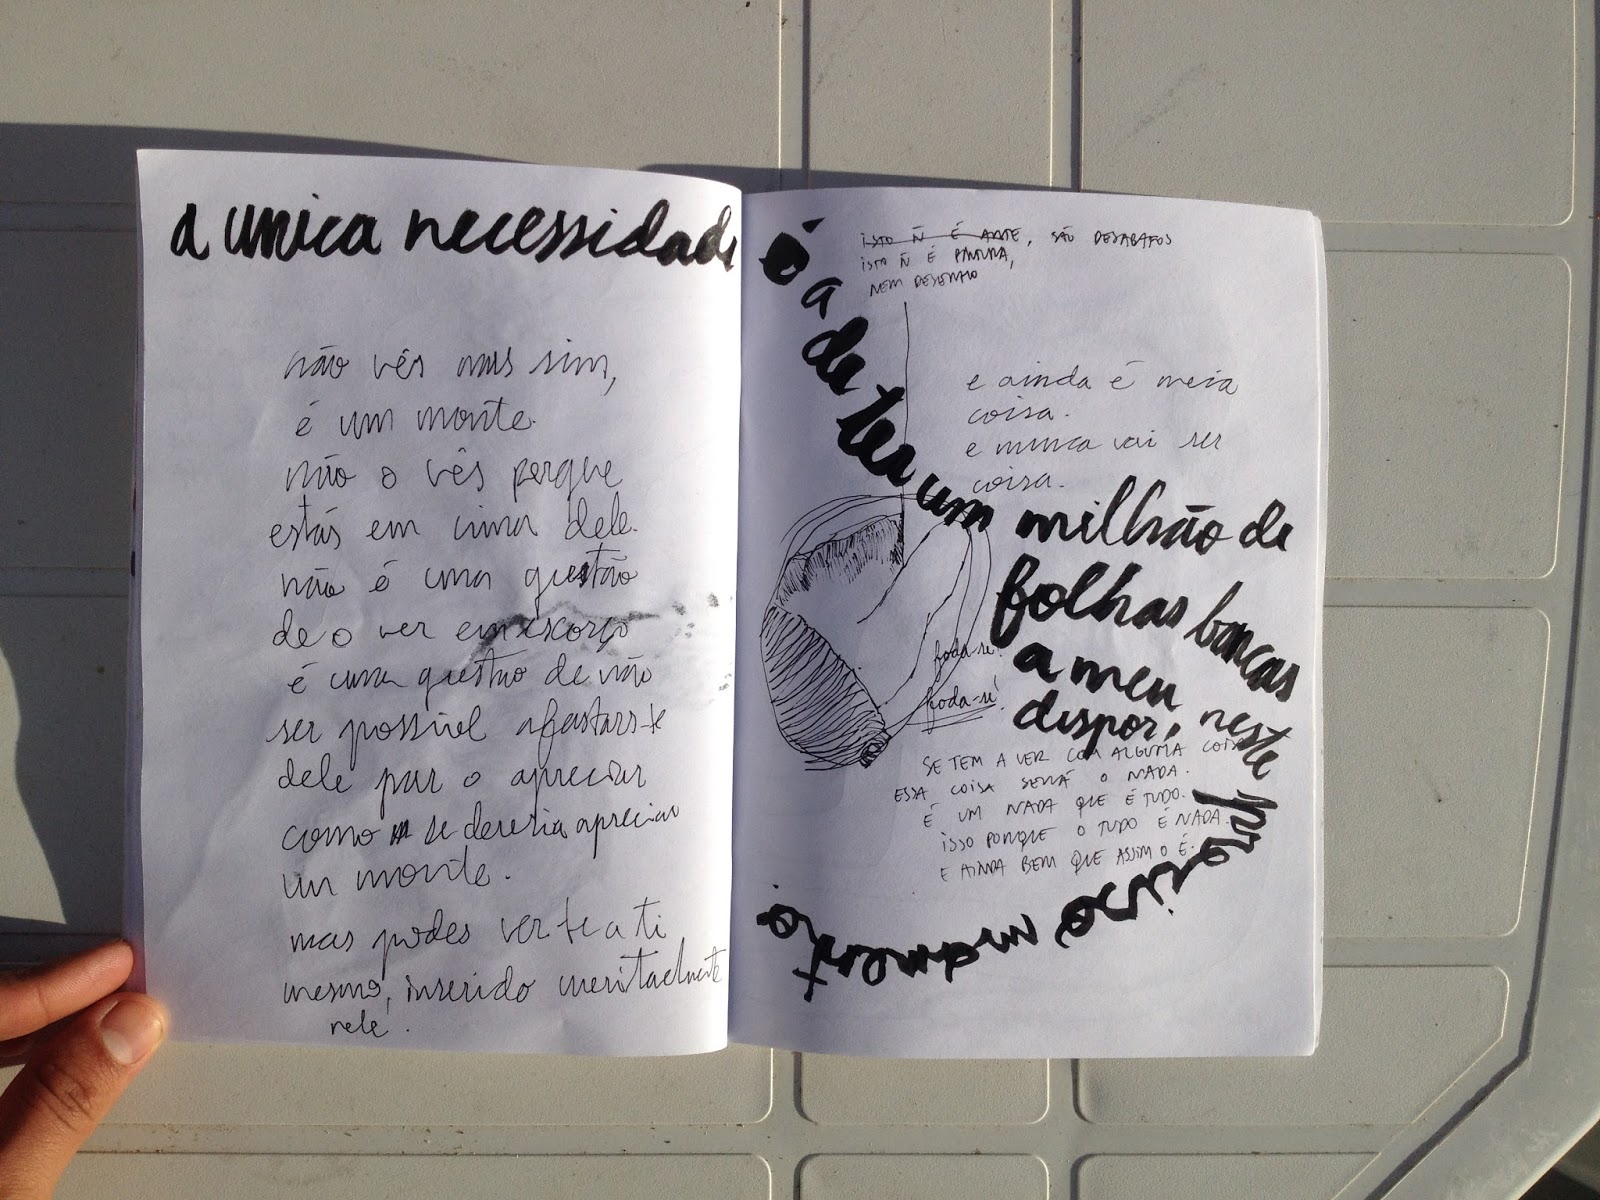 a unica necessidade
não vês mas sim,
é um monte.
não o vês porque
estás em cima dele.
não é uma questão
de o ver em escorço
é uma questão de não
ser possível afastars-te
dele par o apreciar
como se deveria apreciar
um monte.
mas podes ver-te a ti
mesmo, inserido
nele.
É a de ter um milhão de
folhas brancas
a meu
dispor, neste
preciso momento.
isto ñ é arte, são desabafos
isto ñ é pintura,
nem desenho
e ainda é meia
coisa.
e nunca vai ser
coisa.
foda-se!
foda-se!
SE TEM A VER COM ALGUMA COISA
ESSA COISA SERÁ O NADA.
É UM NADA QUE É TUDO.
ISSO PORQUE O TUDO É NADA.
E AINDA BEM QUE ASSIM O É.